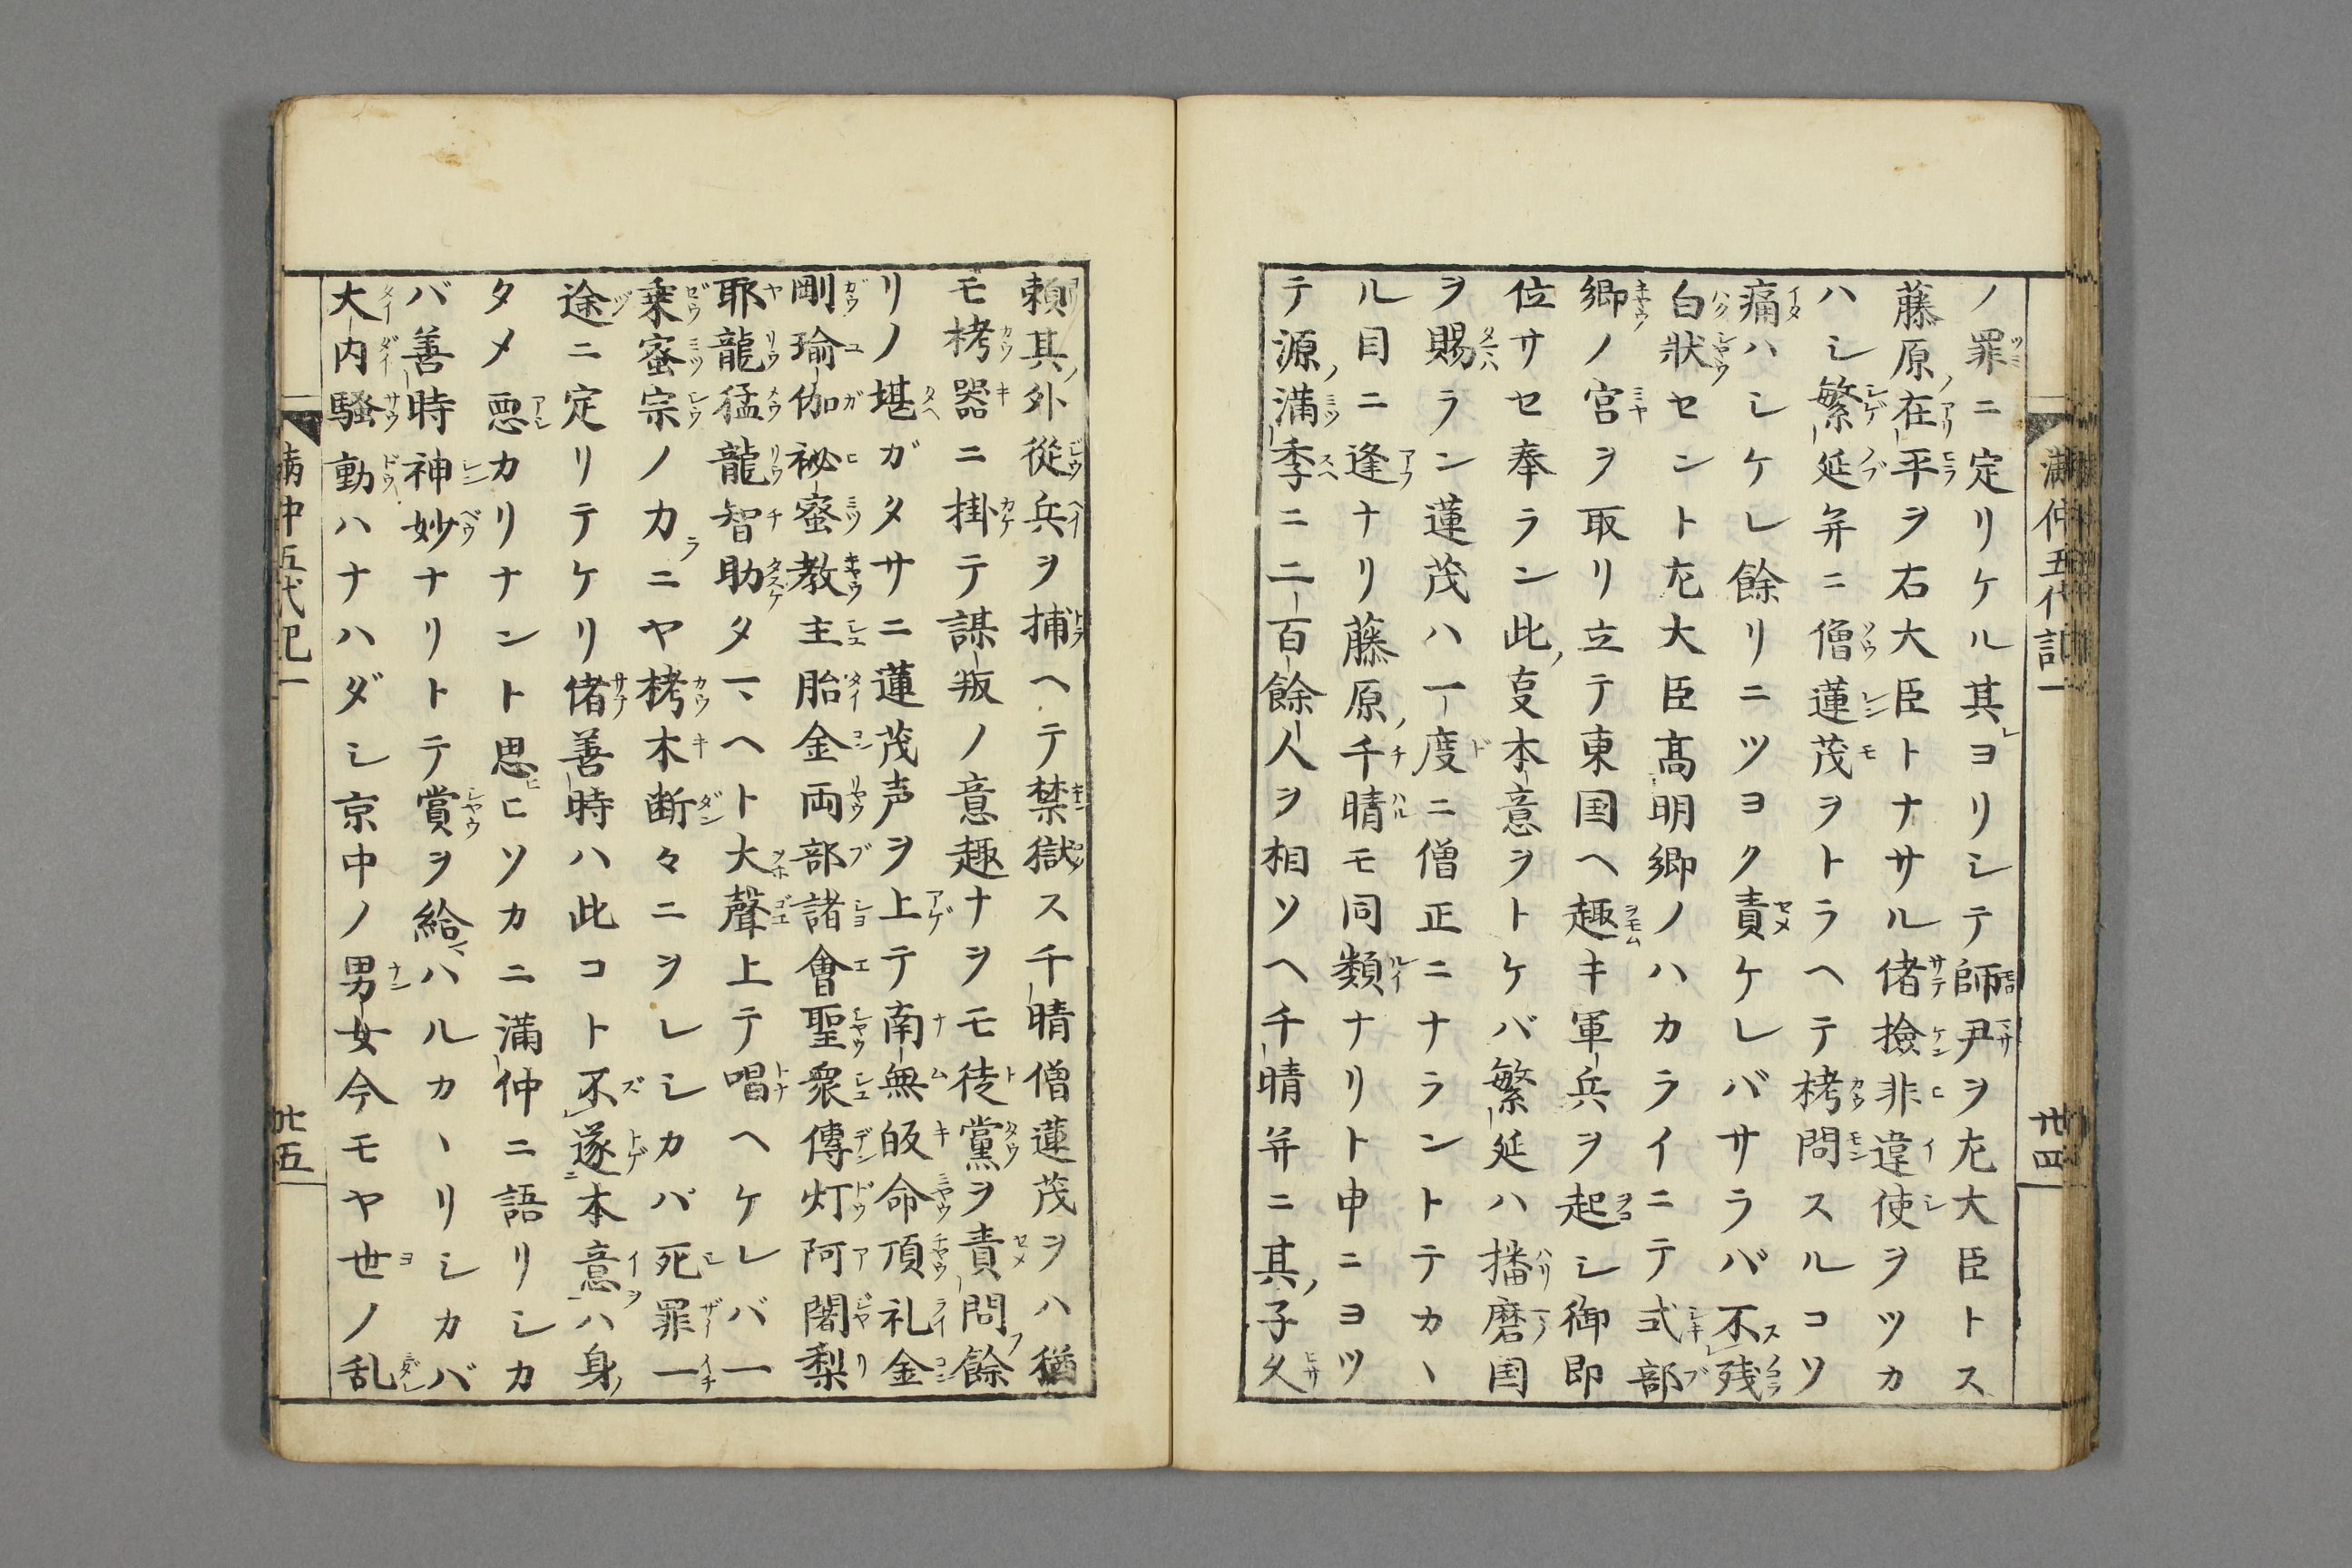 満仲五代記一
廿四
ノ罪ニ定リケル其レヨリシテ師尹ヲ左大臣トス
藤原ノ在平ヲ右大臣トナサル偖撿非違使ヲツカ
ハシ繁延并ニ僧蓮茂ヲトラヘテ栲問スルコソ
痛ハシケレ餘リニツヨク責ケレバサラバ不残
白状セント左大臣髙明卿ノハカライニテ式部
卿ノ宮ヲ取リ立テ東国ヘ趣キ軍兵ヲ起シ御即
位サセ奉ラン此ノ㕝本意ヲトケバ繁延ハ播磨国
ヲ賜ラン蓮茂ハ一度ニ僧正ニナラントテカヽ
ル目ニ逢ナリ藤原ノ千晴モ同類ナリト申ニヨツ
テ源ノ満季ニ二百餘人ヲ相ソヘ千晴并ニ其ノ子久
頼其ノ外従兵ヲ捕ヘテ禁獄ス千晴僧蓮茂ヲハ猶
モ栲器ニ掛テ謀叛ノ意趣ナヲモ徒黨ヲ責問フ餘
リノ堪ガタサニ蓮茂声ヲ上テ南無皈命頂礼金
剛瑜伽祕蜜教主胎金両部諸會聖衆傳灯阿闍梨
耶龍猛龍智助タマヘト大聲上テ唱ヘケレバ一
乗蜜宗ノ力ラニヤ栲木断々ニヲレシカバ死罪一
途ニ定リテケリ偖善時ハ此コト不遂本意ハ身ノ
タメ悪カリナント思ヒヒソカニ満仲ニ語リシカ
バ善時神妙ナリトテ賞ヲ給ハルカヽリシカバ
大内騒動ハナハダシ京中ノ男女今モヤ世ノ乱
満中五代記一
廿五